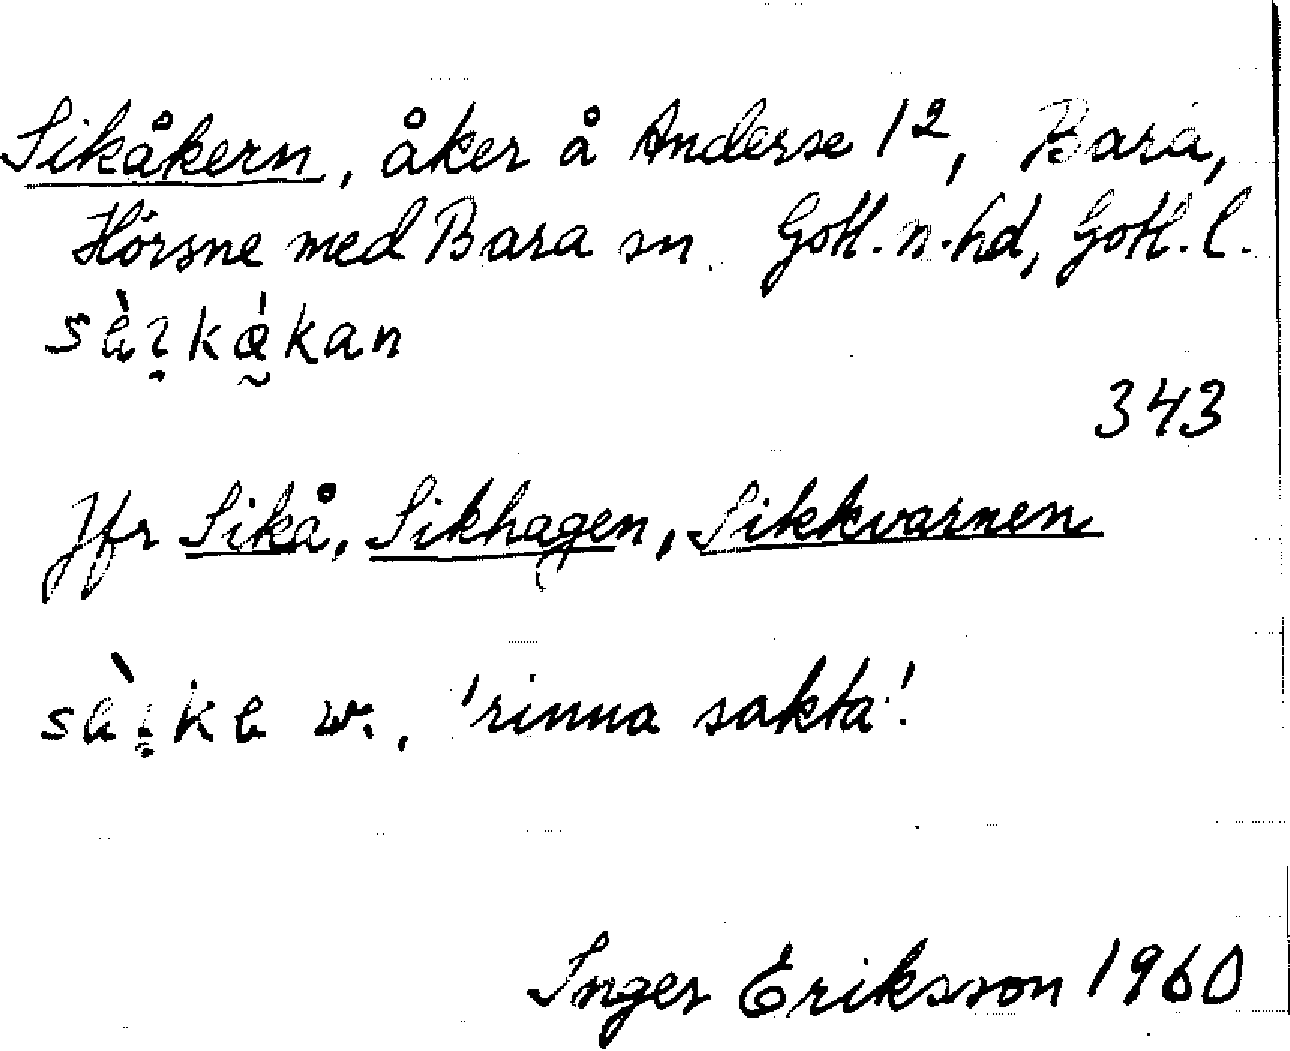 Sikåkern, åker å Anderse 1², Bara,
Hörsne med Bara sn. Gotl. n. hd, Gotl. l.
sàı̣kákan
343
Jfr Sikå, Sikhagen, Sikkvarnen
sàı̣ka v., 'rinna sakta'.
Inger Eriksson 1960